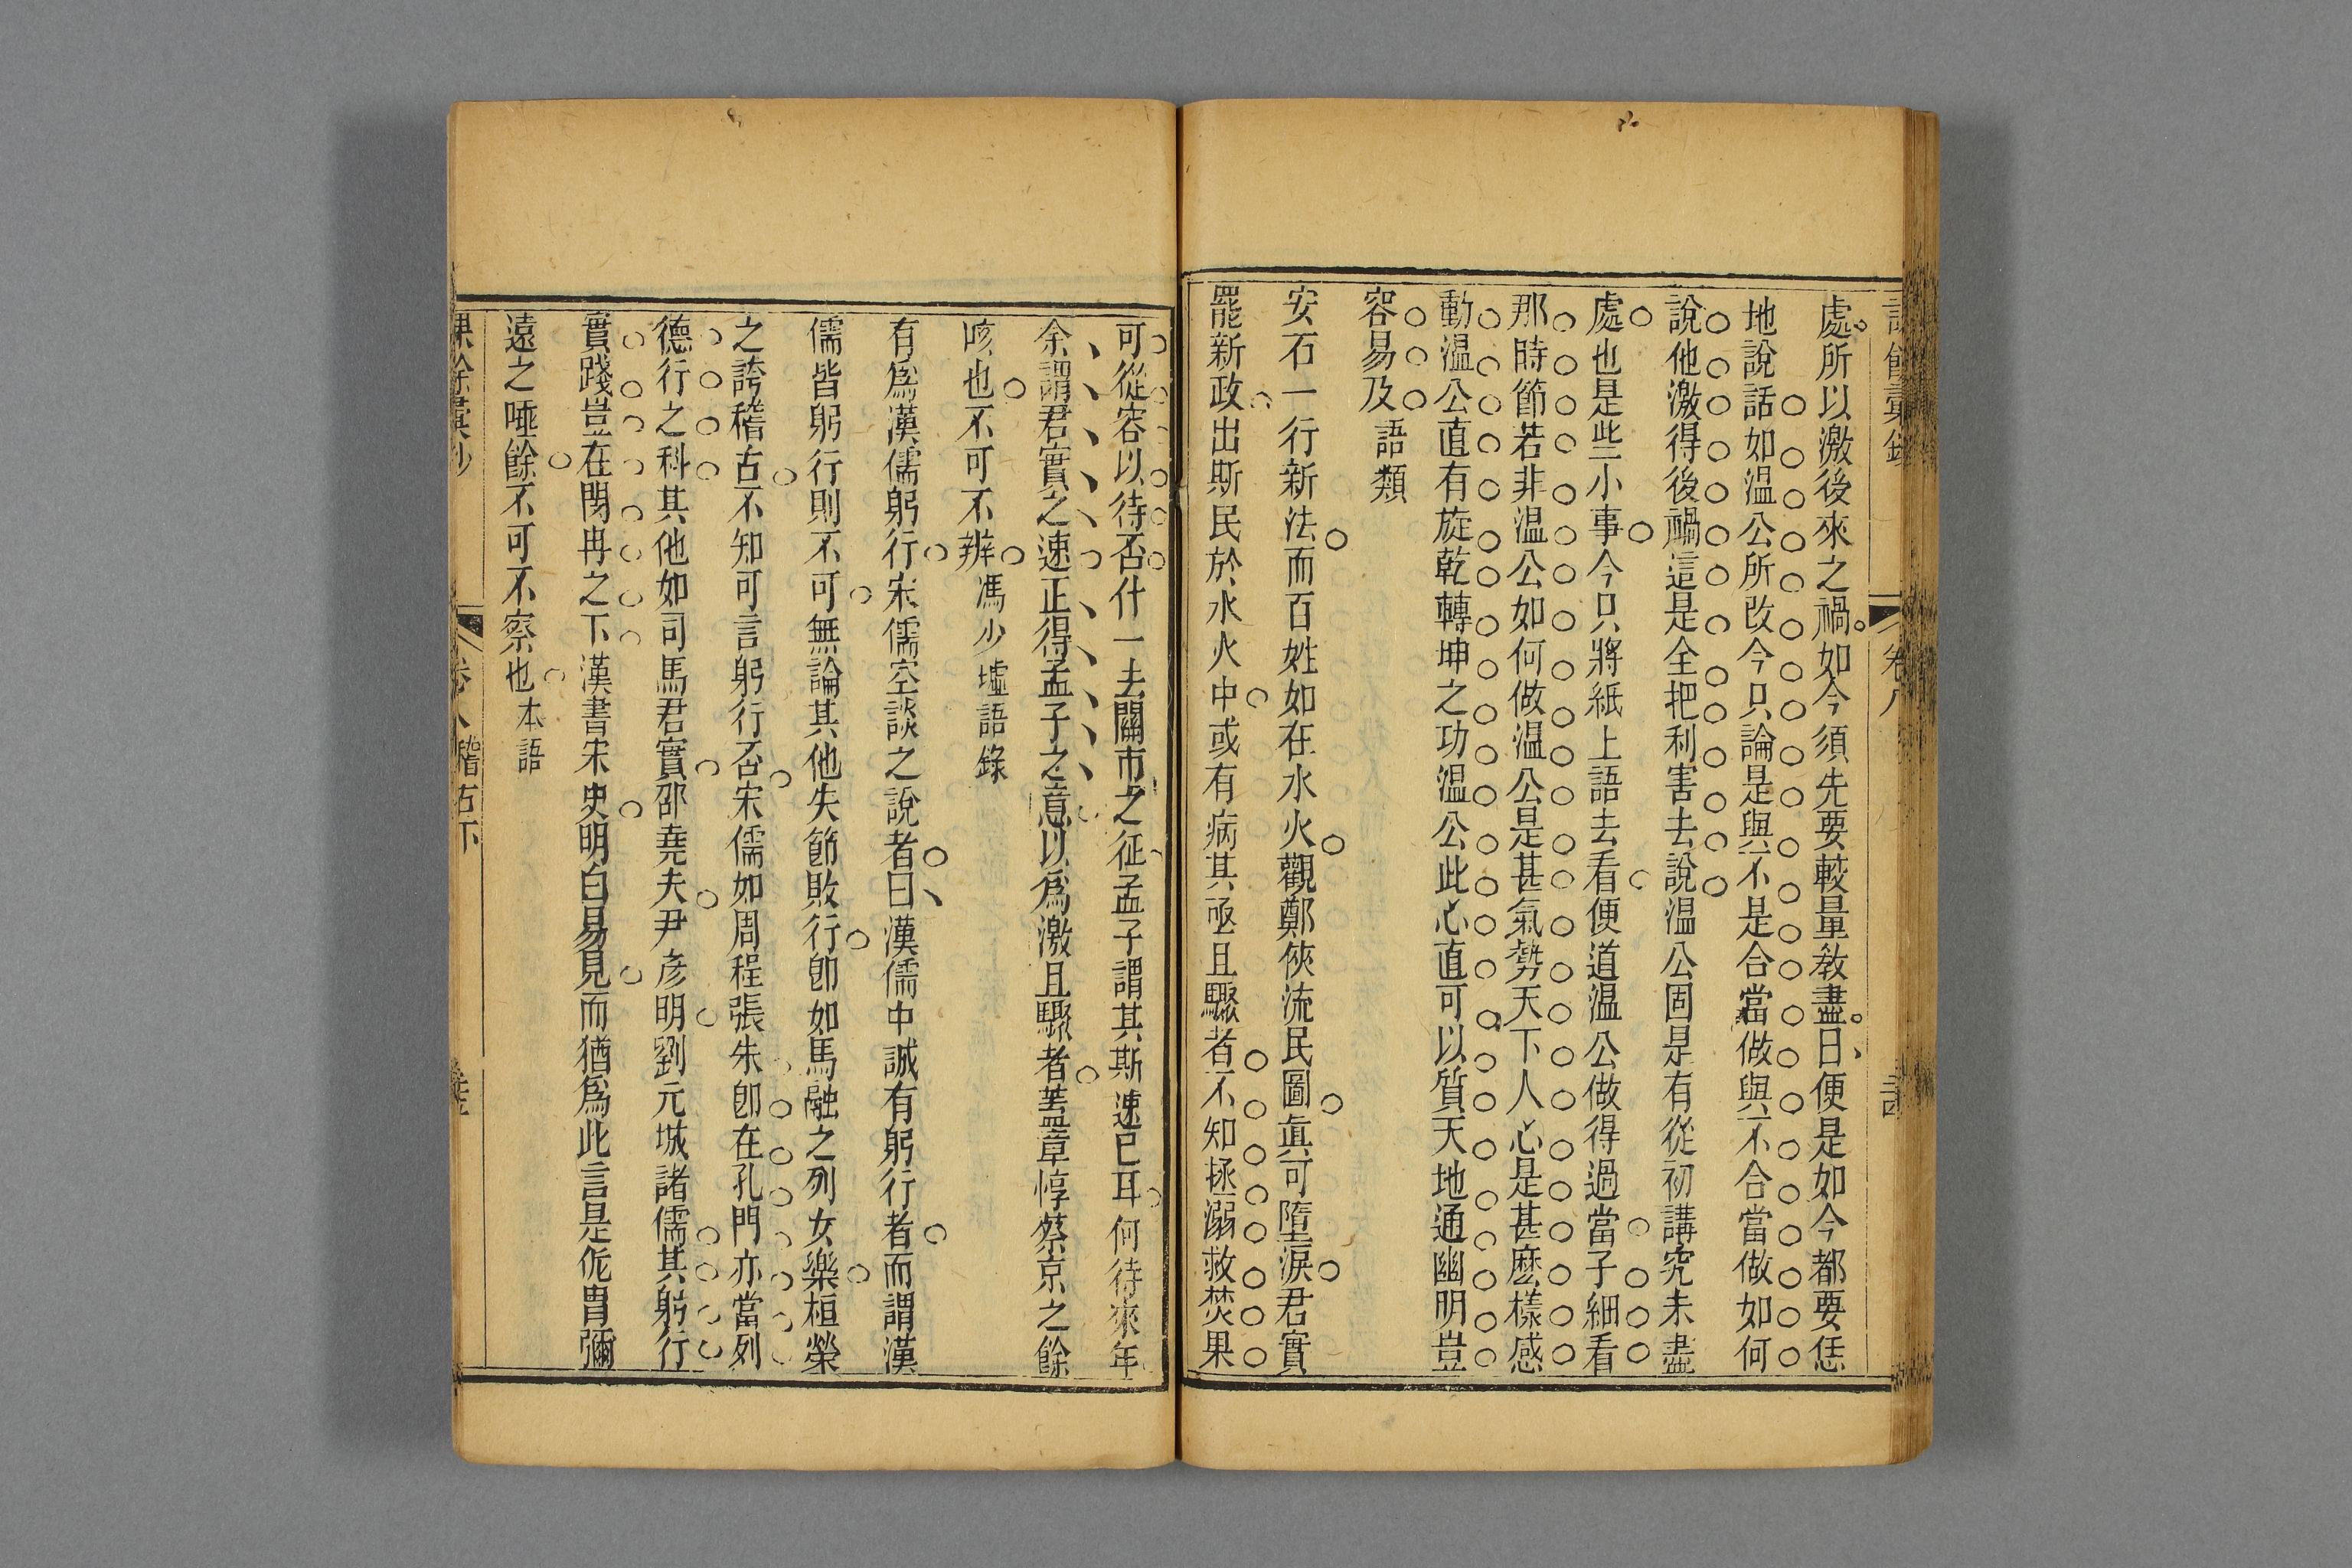 處所以激後來之禍如今須先要較量教盡日便是如今都要恁
地說話如温公所改今只論是與不是合當做與不合當做如何
說他激得後禍這是全把利害去說温公固是有從初講究未盡
處也是些小事今只將紙上語去看便道温公做得過當子細看
那時節若非温公如何做温公是甚氣勢天下人心是甚麽樣感
動温公直有旋乾轉坤之功温公此心直可以質天地通幽明豈
容易及語類
安石一行新法而百姓如在水火觀鄭俠流民圖眞可墮淚君實
罷新政出斯民於水火中或有病其亟且驟者不知拯溺救焚果
可從容以待否什一去關市之征孟子謂其斯速已耳何待來年
余謂君實之速正得孟子之意以爲激且驟者葢章惇蔡京之餘
咳也不可不辨馮少墟語錄
有爲漢儒躬行宋儒空談之說者曰漢儒中誠有躬行者而謂漢
儒皆躬行則不可無論其他失節敗行卽如馬融之列女樂桓榮
之誇稽古不知可言躬行否宋儒如周程張朱卽在孔門亦當列
德行之科其他如司馬君實邵堯夫尹彦明劉元城諸儒其躬行
實踐豈在閔冉之下漢書宋史明白易見而猶爲此言是侂胄彌
遠之唾餘不可不察也本語
卷八 稽古下